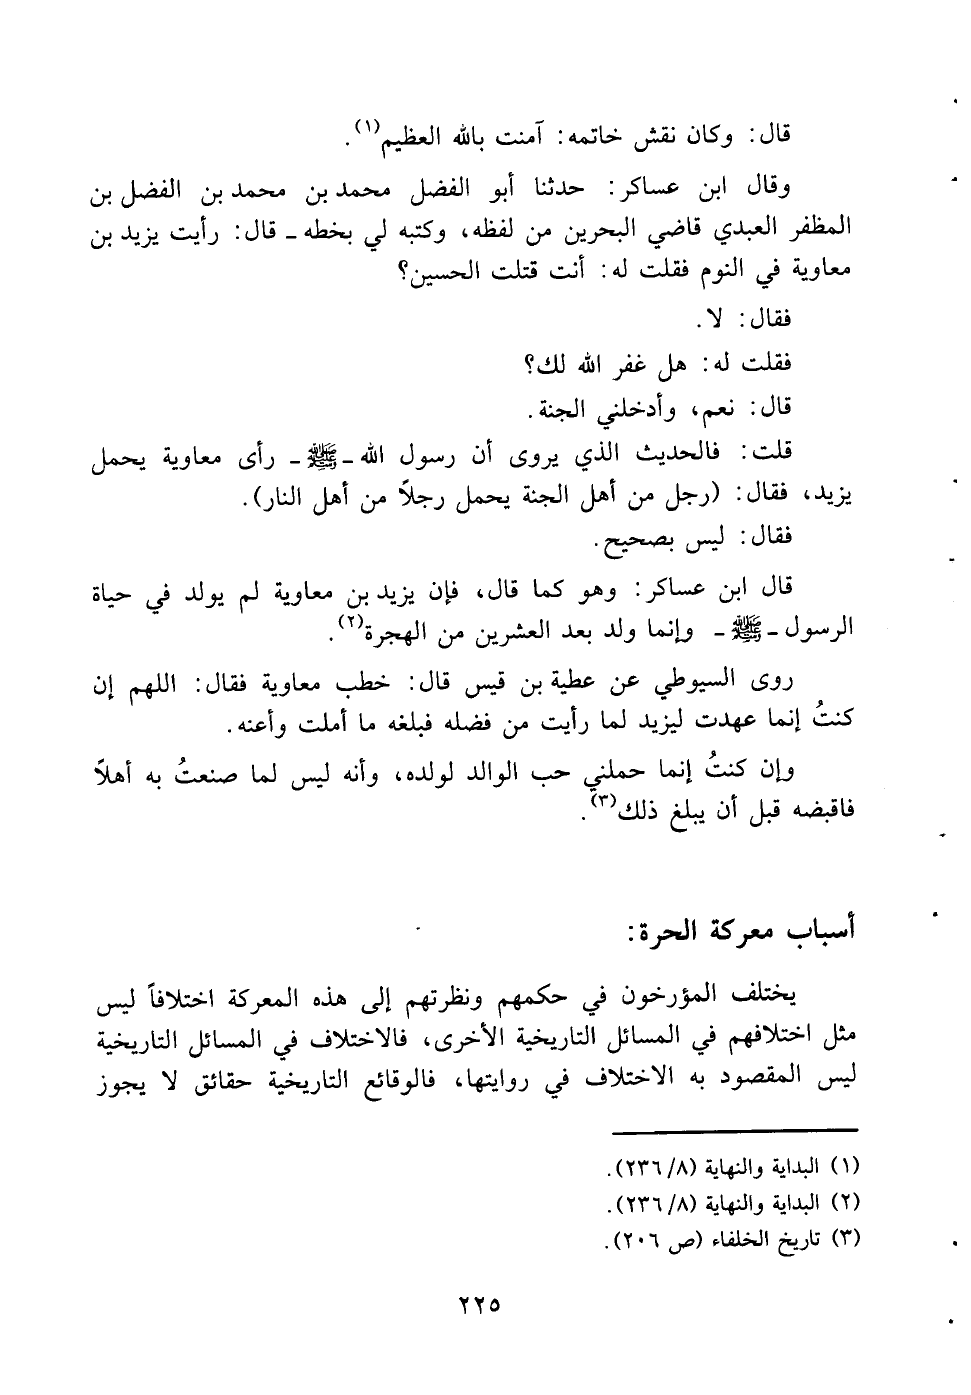 قال: وكان نقش خاتمه: آمنت بالله العظيم(١).
وقال ابن عساكر: حدثنا أبو الفضل محمد بن محمد بن الفضل بن
المظفر العبدي قاضي البحرين من لفظه، وكتبه لي بخطه ـ قال: رأيت يزيد بن
معاوية في النوم فقلت له: أنت قتلت الحسين؟
فقال: لا.
فقلت له: هل غفر الله لك؟
قال: نعم، وأدخلني الجنة.
قلت: فالحديث الذي يروى أن رسول الله ـ ﷺ ـ رأى معاوية يحمل
يزيد، فقال: (رجل من أهل الجنة يحمل رجلاً من أهل النار).
فقال: ليس بصحيح.
قال ابن عساكر: وهو كما قال، فإن يزيد بن معاوية لم يولد في حياة
الرسول ـ ﷺ ـ وإنما ولد بعد العشرين من الهجرة(٢).
روى السيوطي عن عطية بن قيس قال: خطب معاوية فقال: اللهم إن
كنتُ إنما عهدت ليزيد لما رأيت من فضله فبلغه ما أملت وأعنه.
وإن كنتُ إنما حملني حب الوالد لولده، وأنه ليس لما صنعتُ به أهلاً
فاقبضه قبل أن يبلغ ذلك(٣).
أسباب معركة الحرة:
يختلف المؤرخون في حكمهم ونظرتهم إلى هذه المعركة اختلافاً ليس
مثل اختلافهم في المسائل التاريخية الأخرى، فالاختلاف في المسائل التاريخية
ليس المقصود به الاختلاف في روايتها، فالوقائع التاريخية حقائق لا يجوز
(١) البداية والنهاية (٢٣٦/٨).
(٢) البداية والنهاية (٢٣٦/٨).
(٣) تاريخ الخلفاء (ص ٢٠٦).
٢٢٥